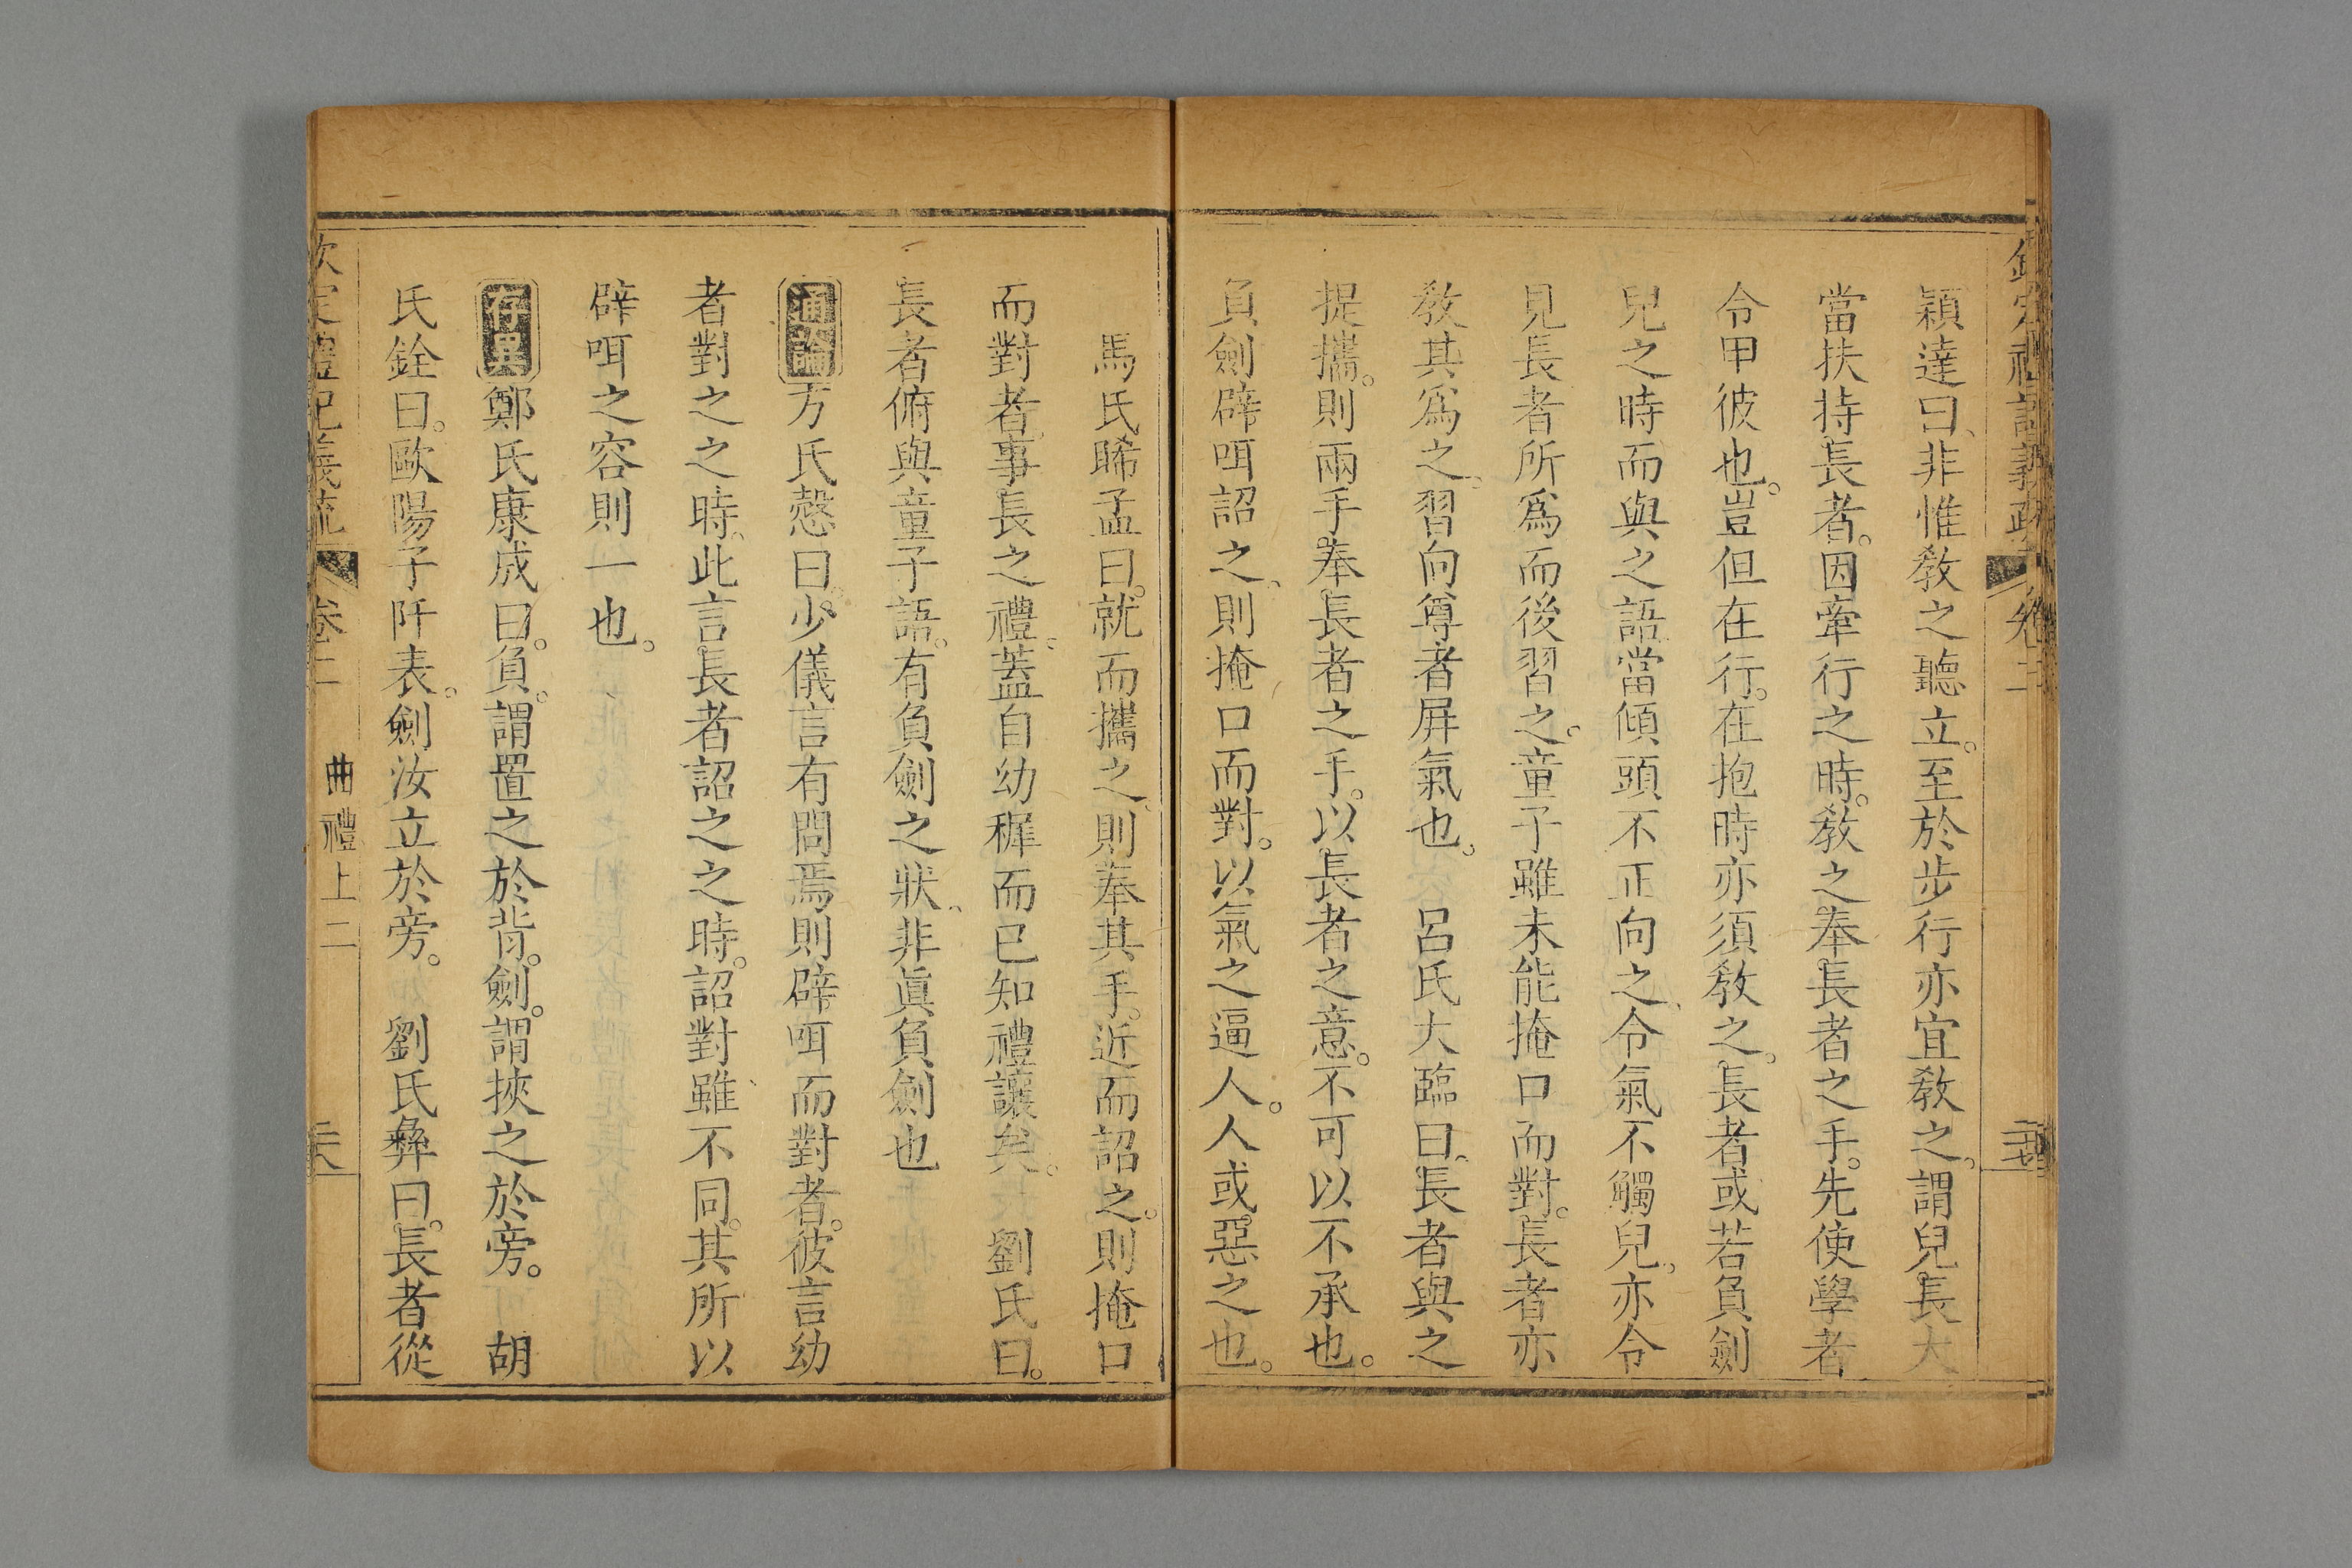 欽定禮記義疏 卷二
穎達曰、非惟敎之聽立。至於步行亦宜敎之。謂兒長大
當扶持長者。因牽行之時。敎之奉長者之手。先使學者
令甲彼也。豈但在行。在抱時亦須敎之。長者或若負劍
兒之時而與之語當傾頭不正向之、令氣不觸兒。亦令
見長者所爲而後習之。童子雖未能掩口而對。長者亦
敎其爲之。習向尊者屏氣也。　呂氏大臨曰、長者與之
提攜。則兩手奉長者之手。以長者之意。不可以不承也。
負劍辟咡詔之、則掩口而對。以氣之逼人。人或惡之也。
馬氏睎孟曰。就而攜之、則奉其手。近而詔之。則掩口
而對者、事長之禮。蓋自幼穉而已知禮讓矣。　劉氏曰。
長者俯與童子語。有負劍之狀、非眞負劍也
通論方氏慤曰。少儀言有問焉則辟咡而對者。彼言幼
者對之之時。此言長者詔之之時。詔對雖不同。其所以
辟咡之容則一也。
存異鄭氏康成曰。負。謂置之於背。劍。謂挾之於旁。　胡
氏銓曰。歐陽子阡表。劍汝立於旁。　劉氏彝曰。長者從
欽定禮記義疏 卷二 曲禮上二